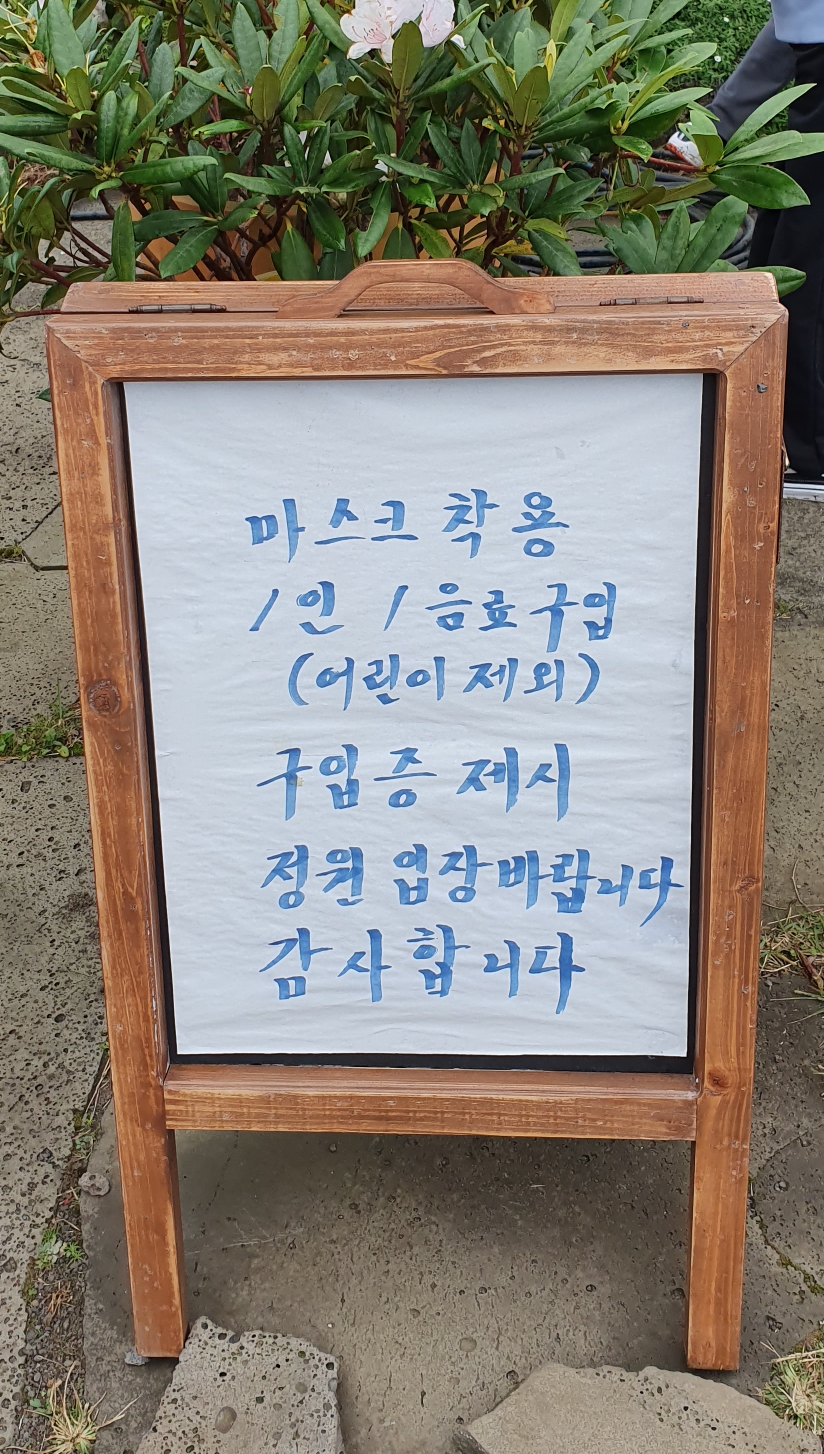 마스크 착용
1인 1음료구입
(어린이 제외)
구입증 제시
정원 입장바랍니다
감사합니다